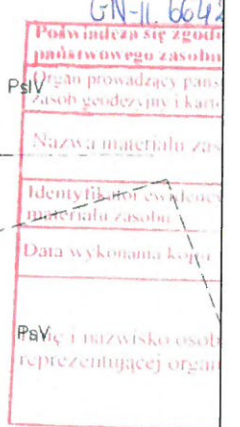 GN-II. 6642
Poświadcza się zgodn
państwowego zasobu
Organ prowadzący pańs
PsIV
zasób geodezyjny i karto
Nazwa materiału zas
Identyfikator ewidency
materiału zasobu
Data wykonania kopii
PsV
i nazwisko osob
reprezentującej organ